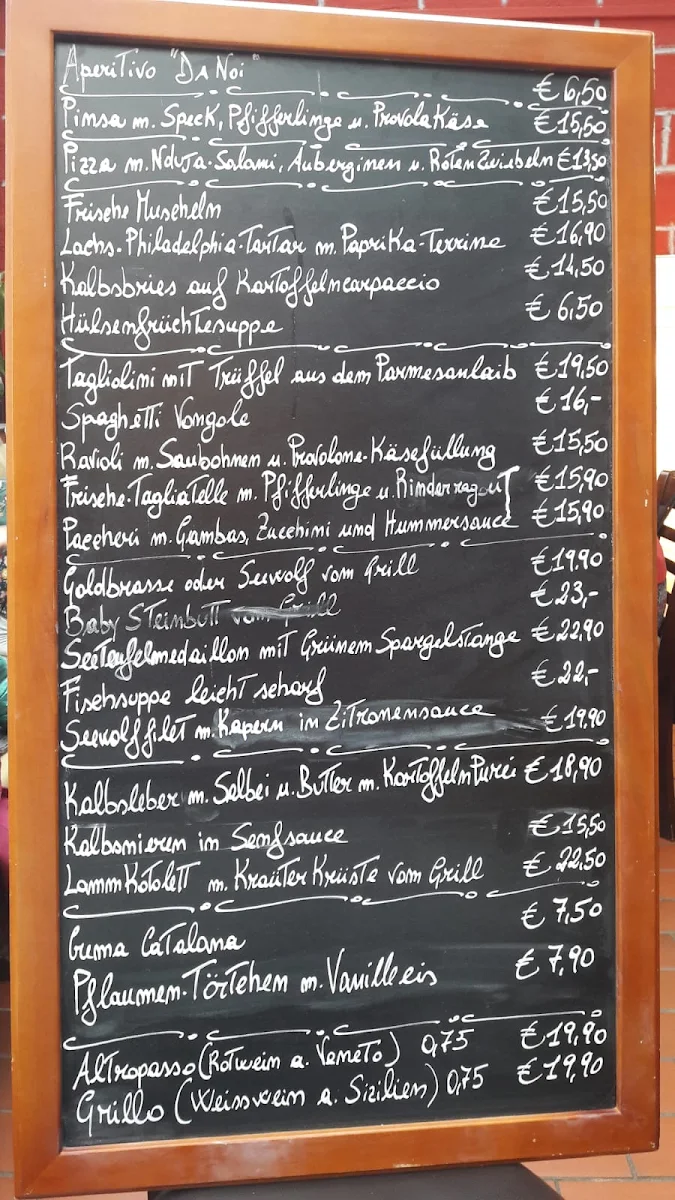 Aperitivo "Da Noi" € 6,50
Pinsa m. Speck, Pfifferlinge u. Provola Käse € 15,50
Pizza m. Nduja-Salami, Auberginen u. Roten Zwiebeln € 13,50
Frische Muscheln € 15,50
Lachs-Philadelphia-Tartar m. Paprika-Terrine € 16,90
Kalbsbries auf Kartoffelncarpaccio € 14,50
Hülsenfrüchtesuppe € 6,50
Tagliolini mit Trüffel aus dem Parmesanlaib € 19,50
Spaghetti Vongole € 16,-
Ravioli m. Saubohnen u. Provolone-Käsefüllung € 15,50
Frische-Tagliatelle m. Pfifferlinge u. Rinderragout € 15,90
Paccheri m. Gambas, Zucchini und Hummersauce € 15,90
Goldbrasse oder Seewolf vom Grill € 19,90
Baby Steinbutt vom Grill € 23,-
Seeteufelmedaillon mit Grünem Spargelstange € 22,90
Fischsuppe leicht scharf € 22,-
Seewolffilet m. Kapern in Zitronensauce € 19,90
Kalbsleber m. Salbei u. Butter m. Kartoffelnpureè € 18,90
Kalbsnieren in Senfsauce € 15,50
Lammkotolett m. Kraüter Krüste vom Grill € 22,50
Crema Catalana € 7,50
Pflaumen-Törtchen m. Vanilleeis € 7,90
Altropasso (Rotwein a. Veneto) 0,75 € 19,90
Grillo (Weisswein a. Sizilien) 0,75 € 19,90